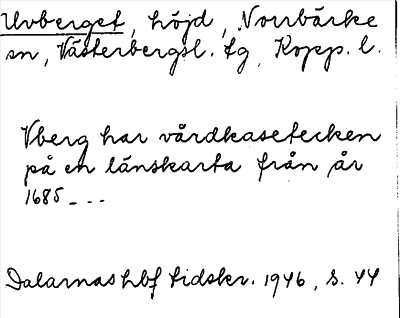 Uvberget, höjd, Norrbärke
sn, Västerbergsl. tg, Kopp. l.
Vberg har vårdkasetecken
på en länskarta från år
1685_ _ _
Dalarnas hbf tidskr. 1946, s. 44